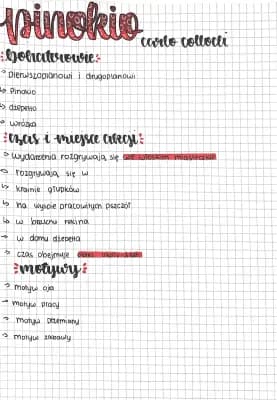 pinokio carlo collodi
Bohaterowie:
Pierwszoplanowi i drugoplanowi
Pinokio
dżepetto
wróżka
czas i miejsce akcji:
Wydarzenia rozgrywają się we włoskim miasteczku
rozgrywają się w
krainie głupków
na wyspie pracowitych pszczół
w brzuchu rekina
w domu dżepetta
czas obejmuje
motywy
motyw ojca
motyw pracy
motyw przemiany
motyw zabawy